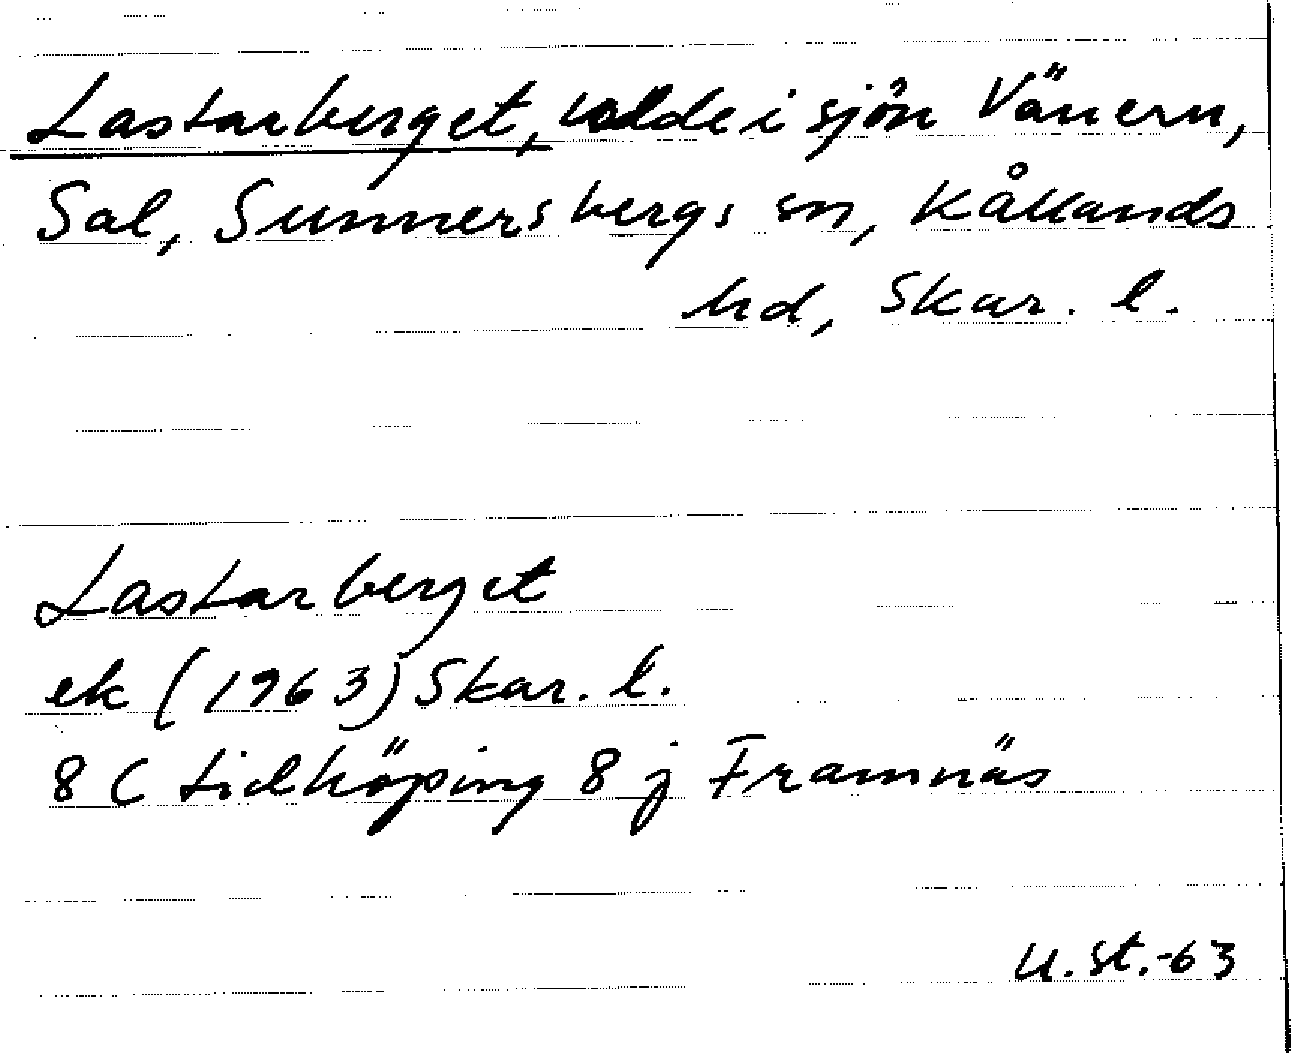 Lastarberget, udde i sjön Vänern,
Sal, Sunnersbergs sn, Kållands
hd, Skar. l.
Lastarberget
ek (1963) Skar. l.
8 C Lidköping 8 j Framnäs
U. St.-63